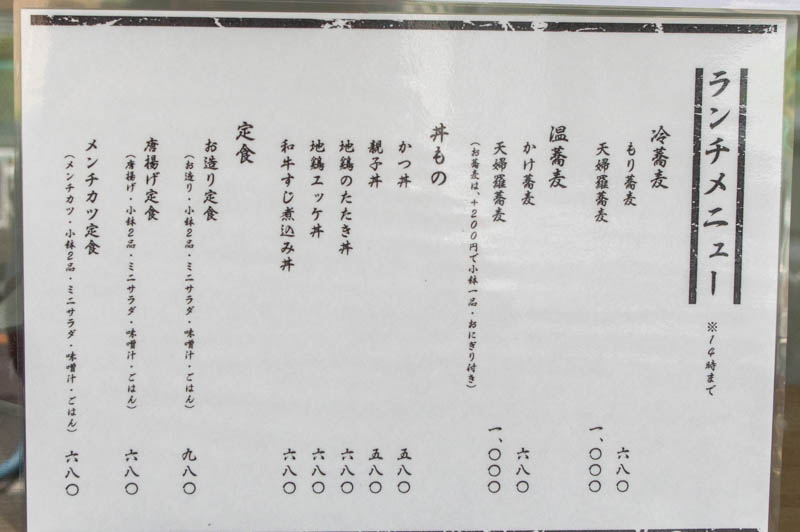 ランチメニュー ※14時まで
冷蕎麦
もり蕎麦 六八〇
天婦羅蕎麦 一、〇〇〇
温蕎麦
かけ蕎麦 六八〇
天婦羅蕎麦 一、〇〇〇
(お蕎麦は、+200円で小鉢一品・おにぎり付き)
丼もの
かつ丼 五八〇
親子丼 五八〇
地鶏のたたき丼 六八〇
地鶏ユッケ丼 六八〇
和牛すじ煮込み丼 六八〇
定食
お造り定食 九八〇
(お造り・小鉢2品・ミニサラダ・味噌汁・ごはん)
唐揚げ定食 六八〇
(唐揚げ・小鉢2品・ミニサラダ・味噌汁・ごはん)
メンチカツ定食 六八〇
(メンチカツ・小鉢2品・ミニサラダ・味噌汁・ごはん)